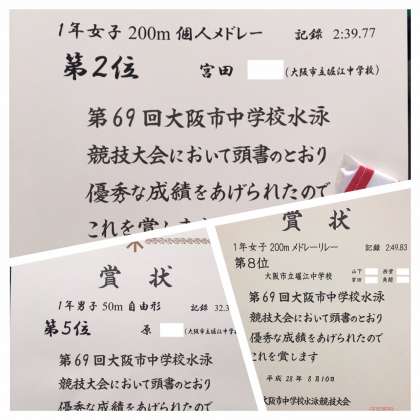 1年女子 200m 個人メドレー 記録 2:39.77
第2位 宮田 (大阪市立堀江中学校)
第69回大阪市中学校水泳
競技大会において頭書のとおり
優秀な成績をあげられたので
これを賞します
賞状
1年男子 50m 自由形 記録 32.3
第5位 原 (大阪市立堀江中学
第69回大阪市中学校水泳
競技大会において頭書のとおり
優秀な成績をあげられたので
賞状
1年女子 200m メドレーリレー 記録 2:49.83
第8位
大阪市立堀江中学校
山下
宮田
第69回大阪市中学校水泳
競技大会において頭書のとおり
優秀な成績をあげられたので
これを賞します
平成28年8月10日
大阪市中学校水泳競技大会